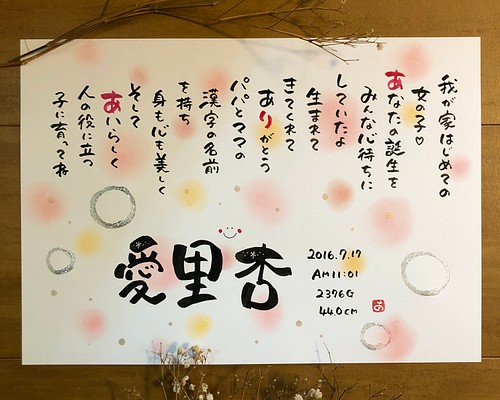 我が家はじめての
女の子♡
あなたの誕生を
みんな心待ちに
していたよ
生まれて
きてくれて
ありがとう
パパとママの
漢字の名前
を持ち
身も心も美しく
そして
あいらしく
人の役に立つ
子に育ってね
愛里杏
2016.7.17
AM11:01
2376G
44.0cm
あ